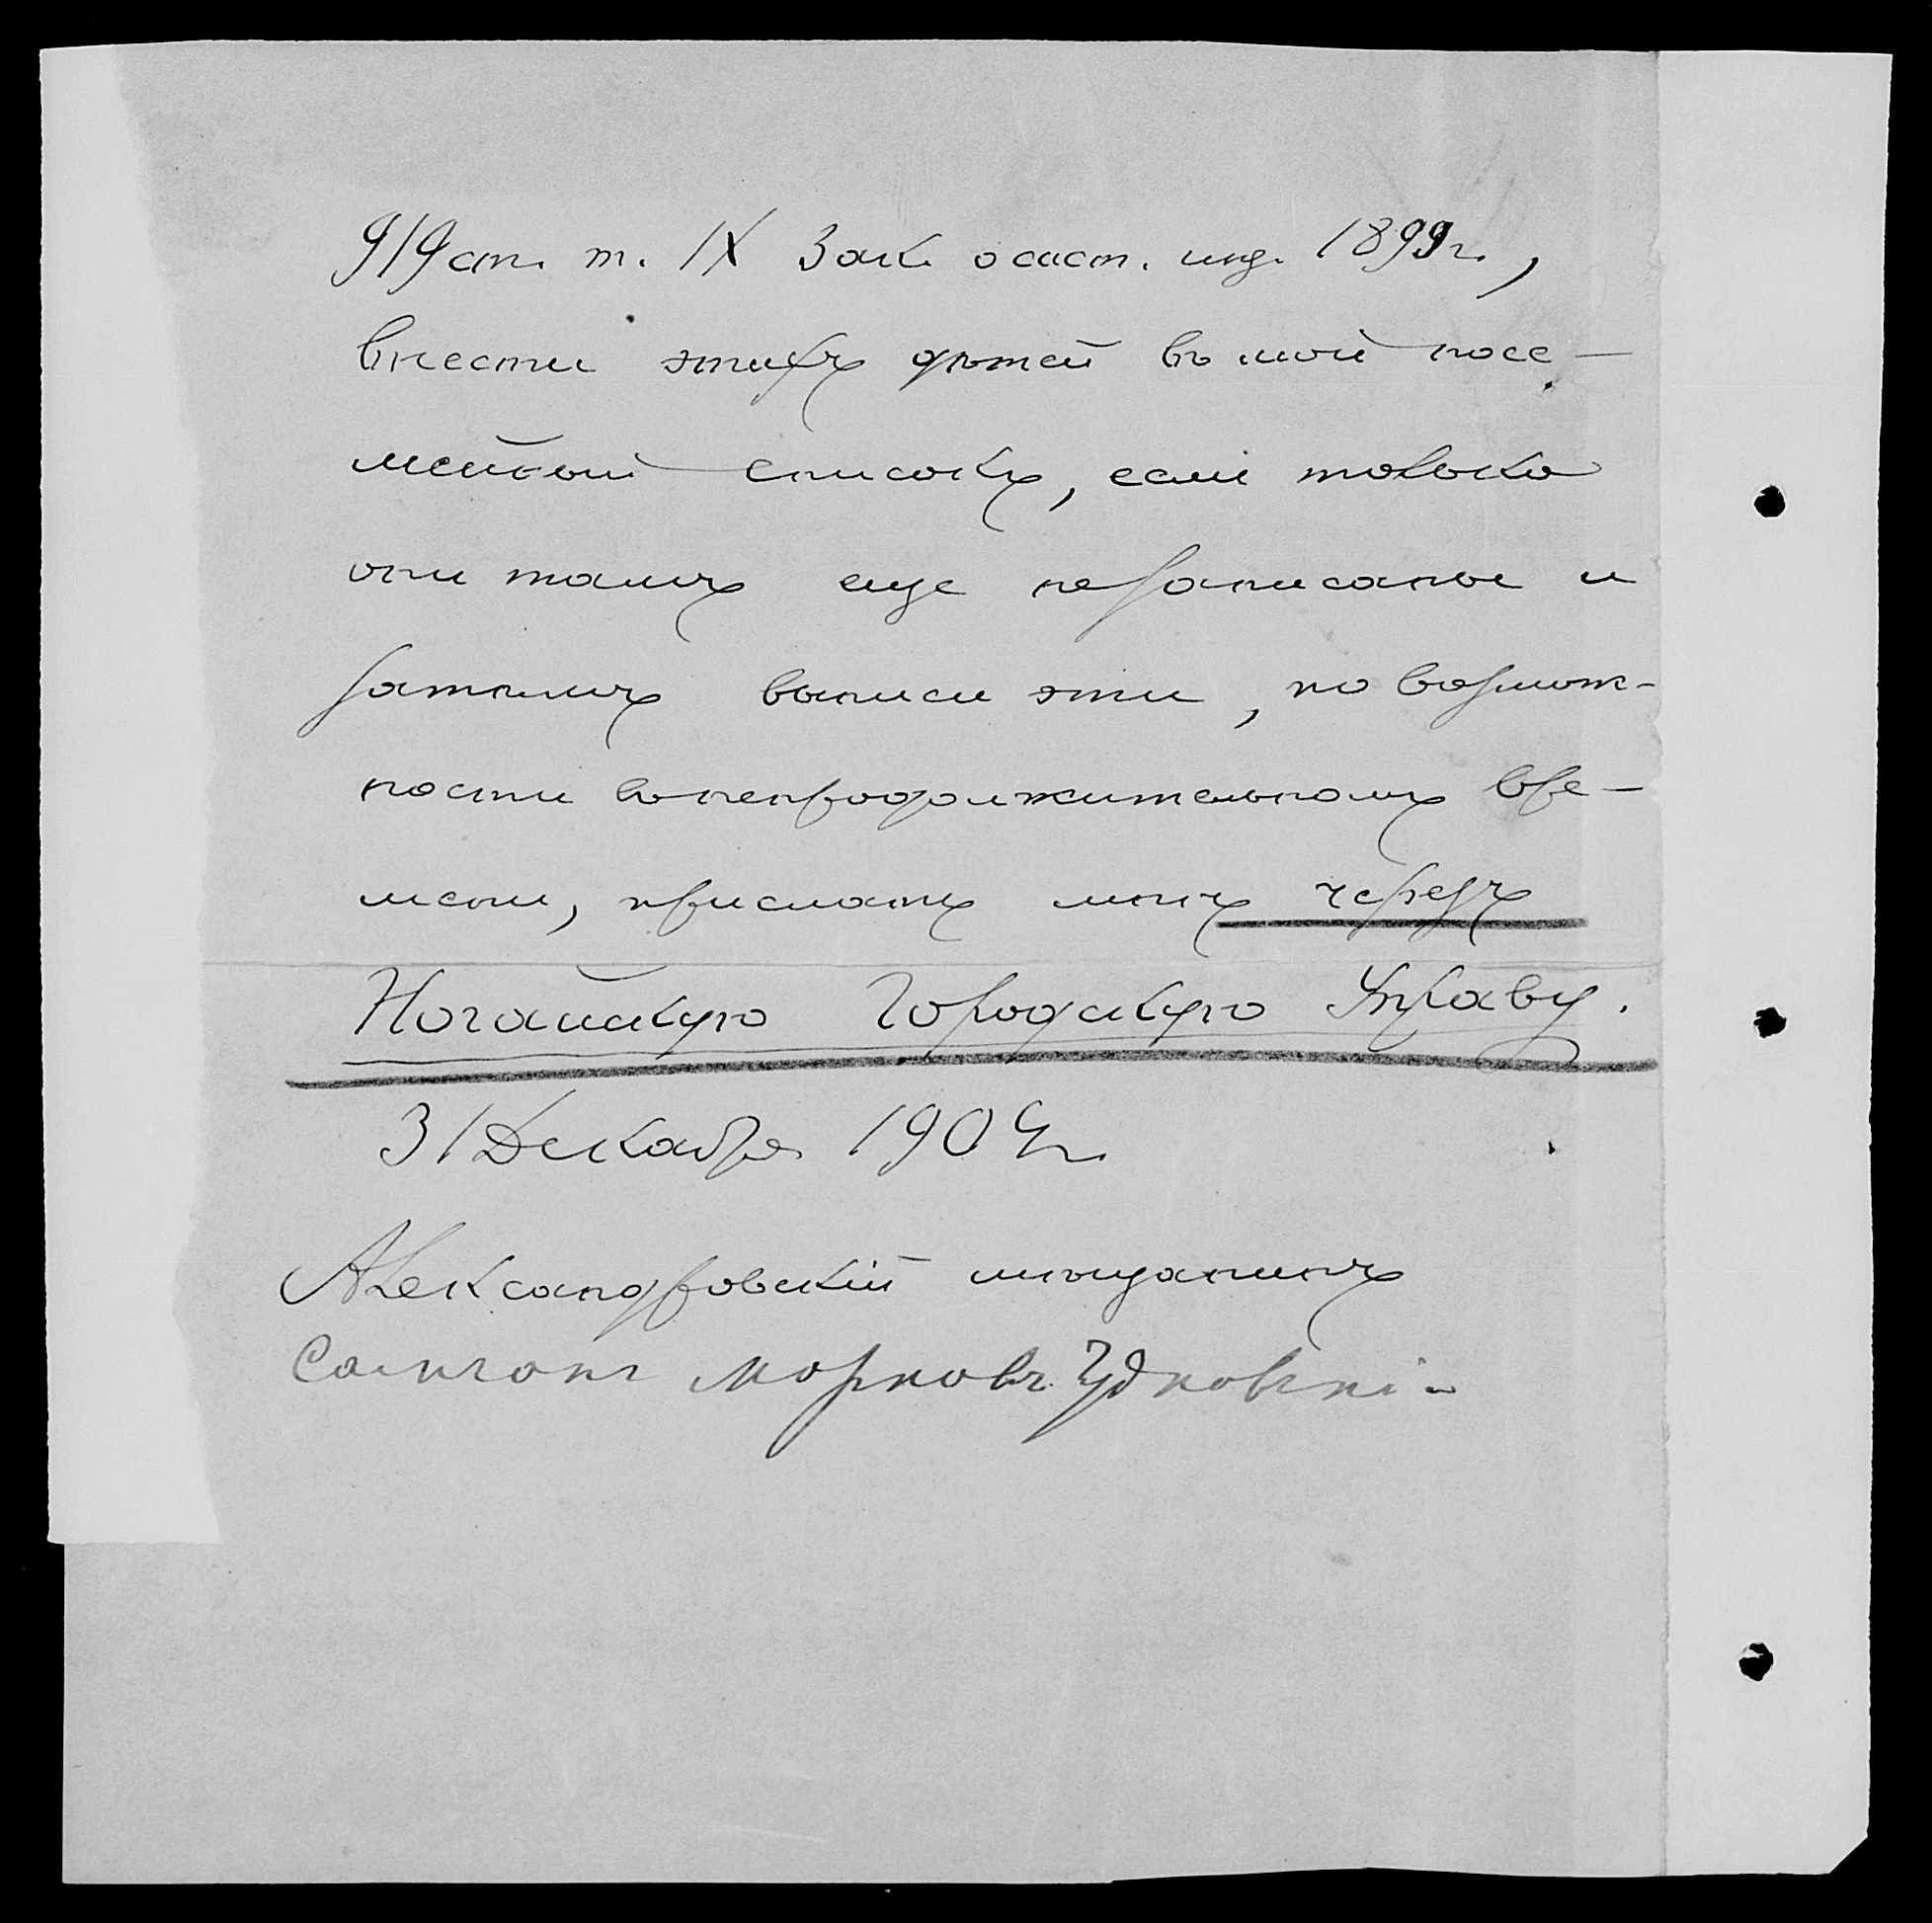 919 ст. т. IX Зак. о сост. изд. 1899 г.,
внести этихъ дѣтей въ мой посе-
мейный списокъ, если только
они тамъ еще незаписаны и
затѣмъ выписи эти, по возмож-
ности въ непродолжительномъ вре-
мени, прислать мнѣ черезъ
Ногайскую Городскую Управу.
31 Декабря 1904 г.
Александровскій мѣщанинъ
Самсонъ Марковъ Чудновскій